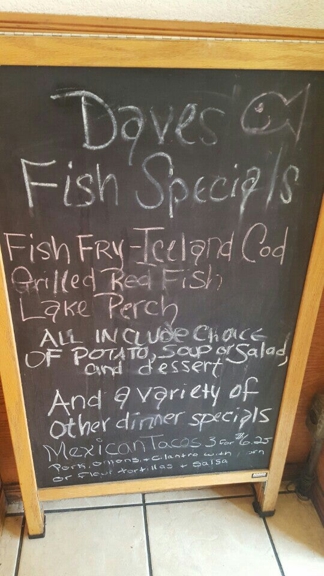 Daves
Fish Specials
Fish Fry - Iceland Cod
Grilled Red Fish
Lake Perch
ALL INCLUDE CHOICE
OF POTATO, SOUP or Salad,
and dessert
And a variety of
other dinner specials
Mexican Tacos 3 for $6.25
Pork, onions, + cilantro with corn
or flour tortillas + salsa